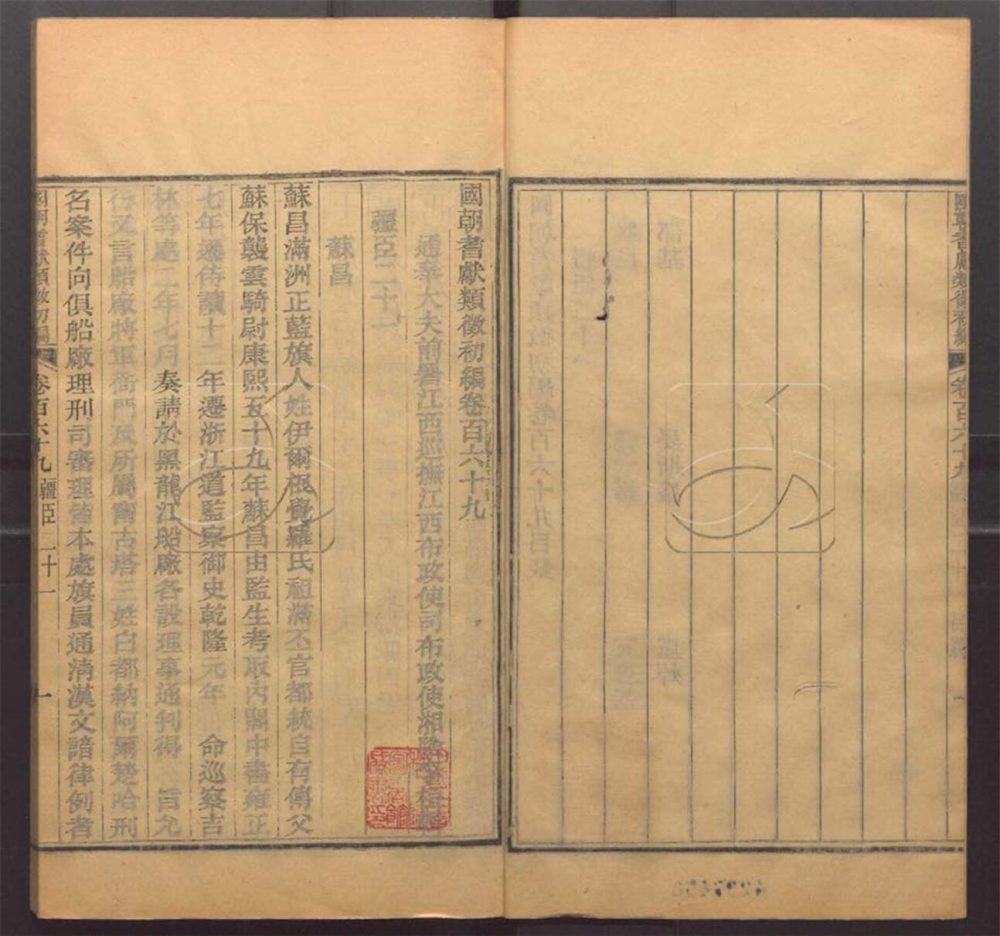 卷百六十九
國朝耆獻類徵初編卷百六十九
通奉大夫前署江西巡撫江西布政使司布政使湘陰李桓輯
疆臣二十一
蘇昌
蘇昌滿洲正藍旗人姓伊爾根覺羅氏祖滿丕官都統自有傳父
蘇保襲雲騎尉康熙五十九年蘇昌由監生考取內閣中書雍正
七年遷侍讀十二年遷浙江道監察御史乾隆元年 命巡察吉
林等處二年七月 奏請於黑龍江船廠各設理事通判得 旨允
行又言船廠將軍衙門及所屬甯古塔三姓白都納阿爾楚哈刑
名案件向俱船廠理刑司審理皆本處旗員通淸漢文諳律例者
國朝耆獻類徵初編 卷百六十九 疆臣二十一 一